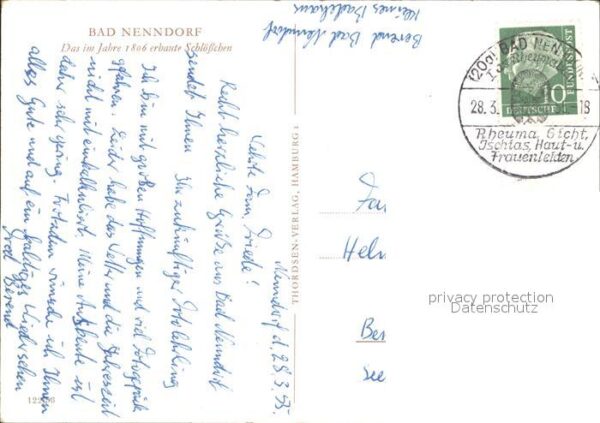 BAD NENNDORF
Das im Jahre 1806 erbaute Schlößchen
Berend Bad Nenndorf
Kleines Badehaus
Nenndorf d. 28.3.55
Liebste Frau Friede!
Recht herzliche Grüße aus Bad Nenndorf
sendet Ihnen Ihr zukünftiger
Ich bin mit großen Hoffnungen und viel
gefahren. Leider habe das Wetter und die Jahreszeit
nicht mit einkalkuliert. Meine Ausbeute ist
daher sehr gering. Trotzdem wünsche ich Ihnen
alles Gute und auf ein baldiges Wiedersehen
Berend
12258
THORDSEN-VERLAG, HAMBURG 1
(20a) BAD NENNDORF
28.3.
18
Rheuma, Gicht,
Ischias, Haut- u.
Frauenleiden
10
DEUTSCHE
BUNDESPOST
Hel
Ber
see
privacy protection
Datenschutz